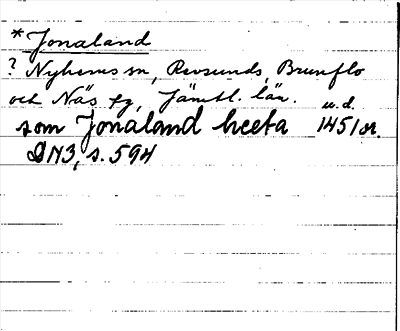 *Jonaland
? Nyhems sn, Revsunds, Brunflo
och Näs tg, Jämtl. län. u.d.
som Jonaland heeta 1451 or.
DN3, s. 594